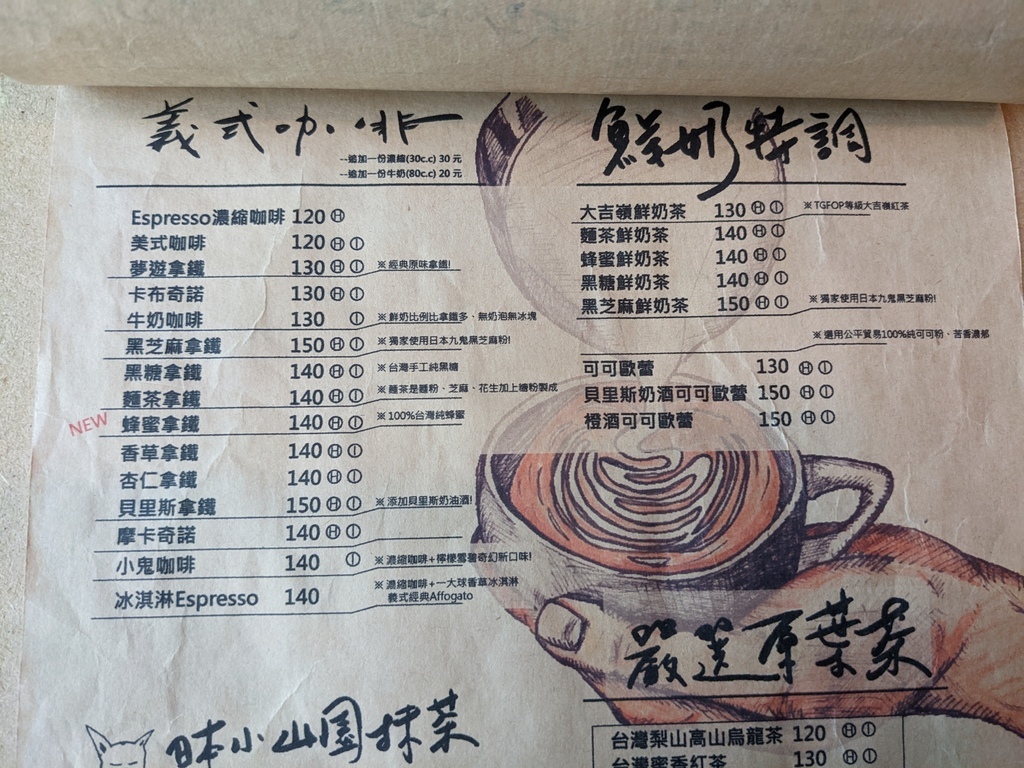 義式咖啡
--追加一份濃縮(30c.c) 30 元
--追加一份牛奶(80c.c) 20 元
Espresso濃縮咖啡 120 Ⓗ
美式咖啡 120 Ⓗ Ⓘ
夢遊拿鐵 130 Ⓗ Ⓘ ※ 經典原味拿鐵!
卡布奇諾 130 Ⓗ Ⓘ
牛奶咖啡 130 Ⓘ ※ 鮮奶比例比拿鐵多、無奶泡無冰塊
黑芝麻拿鐵 150 Ⓗ Ⓘ ※ 獨家使用日本九鬼黑芝麻粉!
黑糖拿鐵 140 Ⓗ Ⓘ ※ 台灣手工純黑糖
麵茶拿鐵 140 Ⓗ Ⓘ ※ 麵茶是麵粉、芝麻、花生加上糖粉製成
NEW 蜂蜜拿鐵 140 Ⓗ Ⓘ ※ 100%台灣純蜂蜜
香草拿鐵 140 Ⓗ Ⓘ
杏仁拿鐵 140 Ⓗ Ⓘ
貝里斯拿鐵 150 Ⓗ Ⓘ ※ 添加貝里斯奶油酒!
摩卡奇諾 140 Ⓗ Ⓘ
小鬼咖啡 140 Ⓘ ※ 濃縮咖啡+檸檬雪碧奇幻新口味!
冰淇淋Espresso 140 ※ 濃縮咖啡+一大球香草冰淇淋
義式經典Affogato
日本小山園抹茶
鮮奶特調
大吉嶺鮮奶茶 130 Ⓗ Ⓘ ※ TGFOP等級大吉嶺紅茶
麵茶鮮奶茶 140 Ⓗ Ⓘ
蜂蜜鮮奶茶 140 Ⓗ Ⓘ
黑糖鮮奶茶 140 Ⓗ Ⓘ
黑芝麻鮮奶茶 150 Ⓗ Ⓘ ※ 獨家使用日本九鬼黑芝麻粉!
※ 選用公平貿易100%純可可粉、苦香濃郁
可可歐蕾 130 Ⓗ Ⓘ
貝里斯奶酒可可歐蕾 150 Ⓗ Ⓘ
橙酒可可歐蕾 150 Ⓗ Ⓘ
嚴選原葉茶
台灣梨山高山烏龍茶 120 Ⓗ Ⓘ
台灣蜜香紅茶 130 Ⓗ Ⓘ